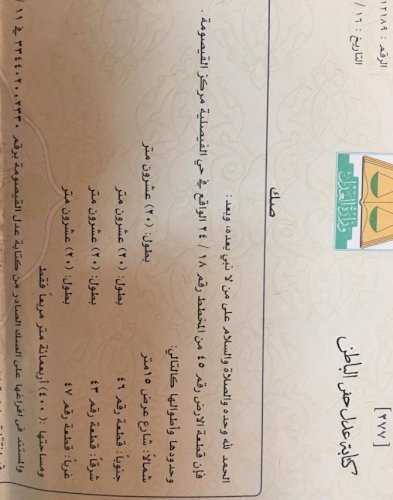 [٢٧٧]
كتابة عدل حفر الباطن
وزارة العدل
الرقم : ١٢١٨٩
التاريخ : ١٦ /
صك
الحمد لله وحده والصلاة والسلام على من لا نبي بعده، وبعد :
فإن قطعة الارض رقم ٤٥ من المخطط رقم ١٨ / ٢٤ الواقع في حي الفيصلية مركز القيصومة .
وحدودها واطوالها كالتالي:
شمالاً: شارع عرض ١٥ متر بطول: (٢٠) عشرون متر
جنوباً: قطعة رقم ٤٦ بطول: (٢٠) عشرون متر
شرقاً: قطعة رقم ٤٣ بطول: (٢٠) عشرون متر
غرباً: قطعة رقم ٤٧ بطول: (٢٠) عشرون متر
ومساحتها : (٤٠٠) أربعمائة متر مربعاً فقط
والمستند في افراغها على الصك الصادر من كتابة عدل القيصومة برقم ٣٣٤٤٠٢٠٠٢٣٣٠ في ١١ /